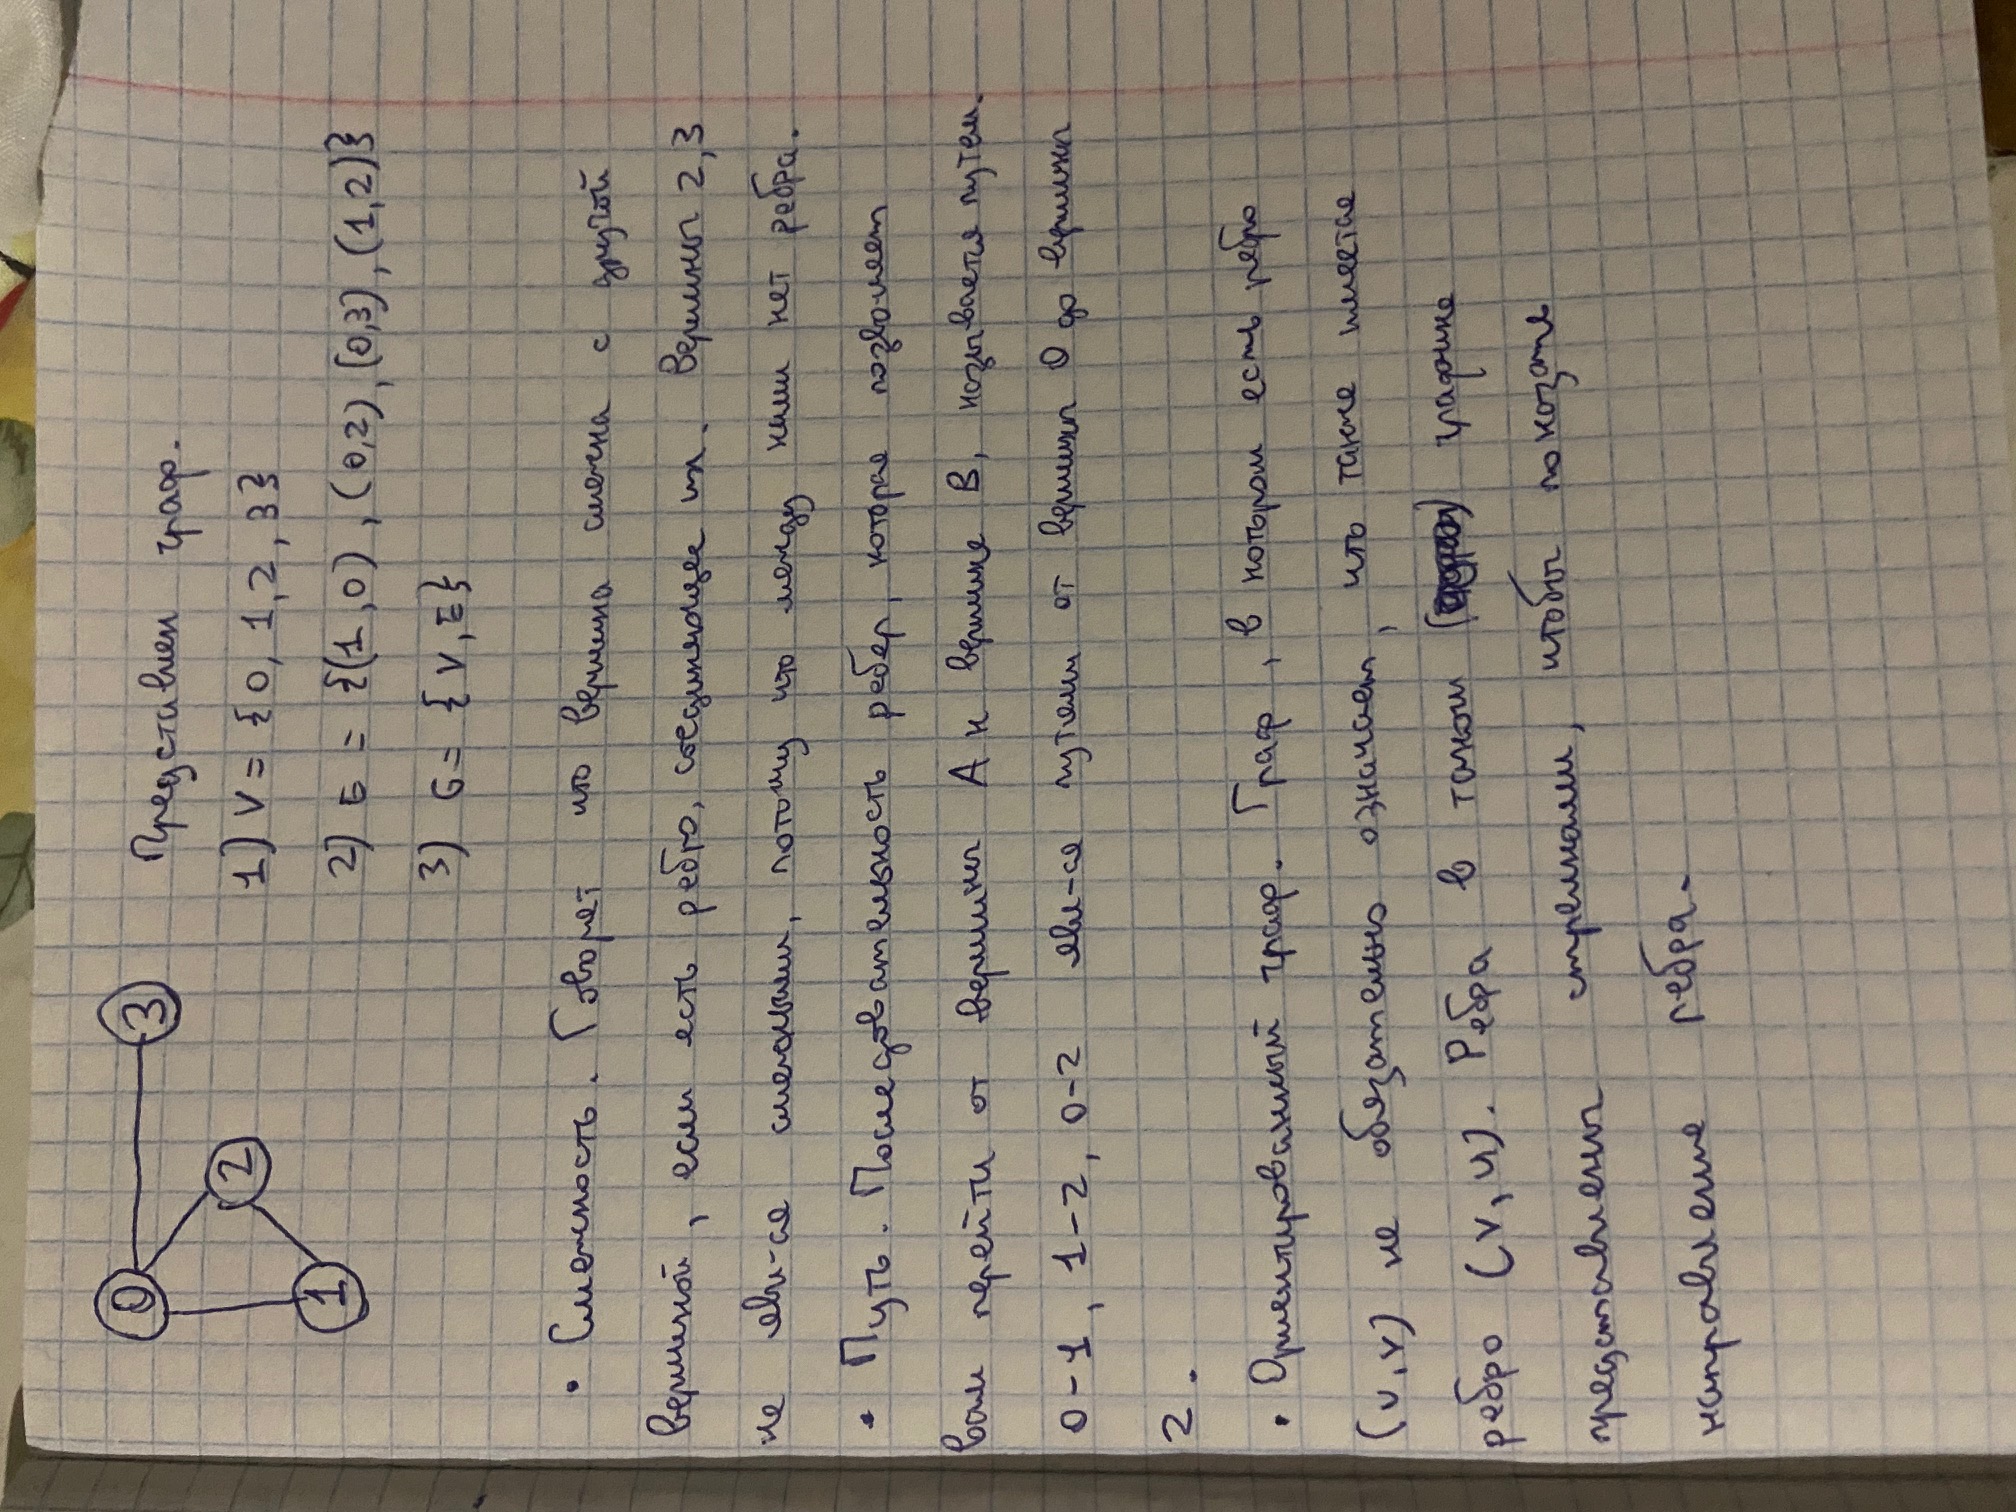 0
3
2
1
Представлен граф.
1) V = {0, 1, 2, 3}
2) E = {(1,0), (0,2), (0,3), (1,2)}
3) G = {V, E}
• Смежность. Говорят что вершина смежна с другой
вершиной, если есть ребро, соединяющее их. Вершины 2,3
не явл-ся смежными, потому что между ними нет ребра.
• Путь. Последовательность ребер, которая позволяет
вам перейти от вершины A к вершине B, называется путем.
0-1, 1-2, 0-2 явл-ся путями от вершины 0 до вершины
2.
• Ориентированный граф. Граф, в котором есть ребро
(u,v) не обязательно означает, что также имеется
ребро (v,u). Ребра в таком графике
представлены стрелками, чтобы показать
направление ребра.